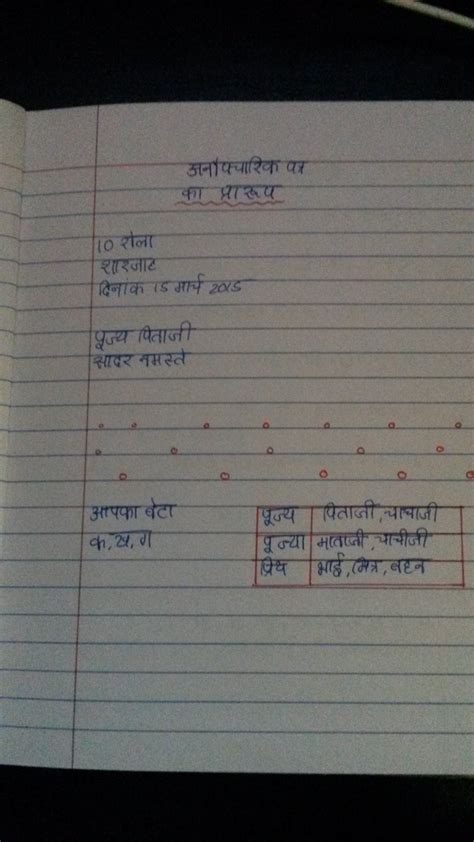 अनौपचारिक पत्र
का प्रारूप
10 रोला
शारजाह
दिनांक 15 मार्च 2015
पूज्य पिताजी
सादर नमस्ते
आपका बेटा
क, ख, ग
पूज्य पिताजी, चाचाजी
पूज्या माताजी, चाचीजी
प्रिय भाई, मित्र, बहन